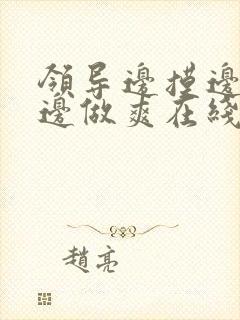 領导邊摸邊
邊做爽在綫
趙亮